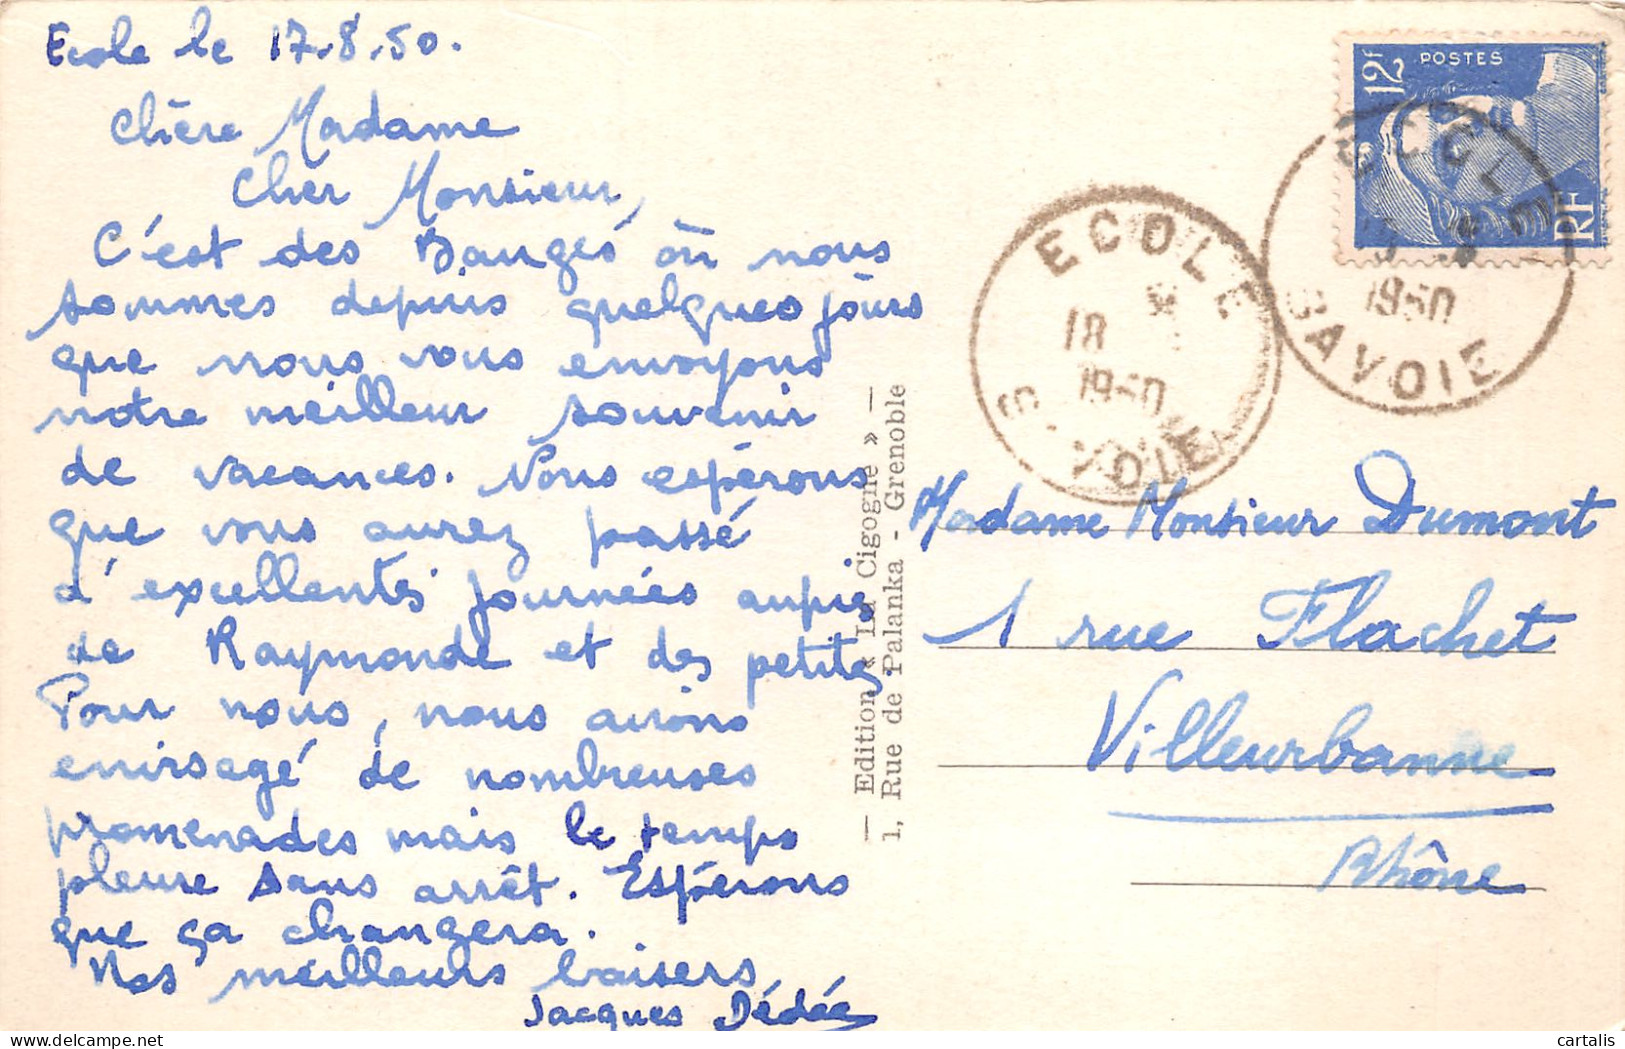 Ecole le 17.8.50.
Chère Madame
Cher Monsieur,
C'est des Bauges où nous
sommes depuis quelques jours
que nous vous envoyons
notre meilleur souvenir
de vacances. Nous espérons
que vous aurez passé
d'excellentes journées auprès
de Raymonde et des petites
Pour nous, nous avions
envisagé de nombreuses
promenades mais le temps
pleure sans arrêt. Espérons
que ça changera.
Nos meilleurs baisers
Jacques Dédée
— Edition « La Cigogne » —
1, Rue de Palanka - Grenoble
12F POSTES
RF
ECOLE
1950
SAVOIE
ECOLE
18
1950
VOIE
Madame Monsieur Dumont
1 rue Flachet
Villeurbanne
Rhône
cartalis